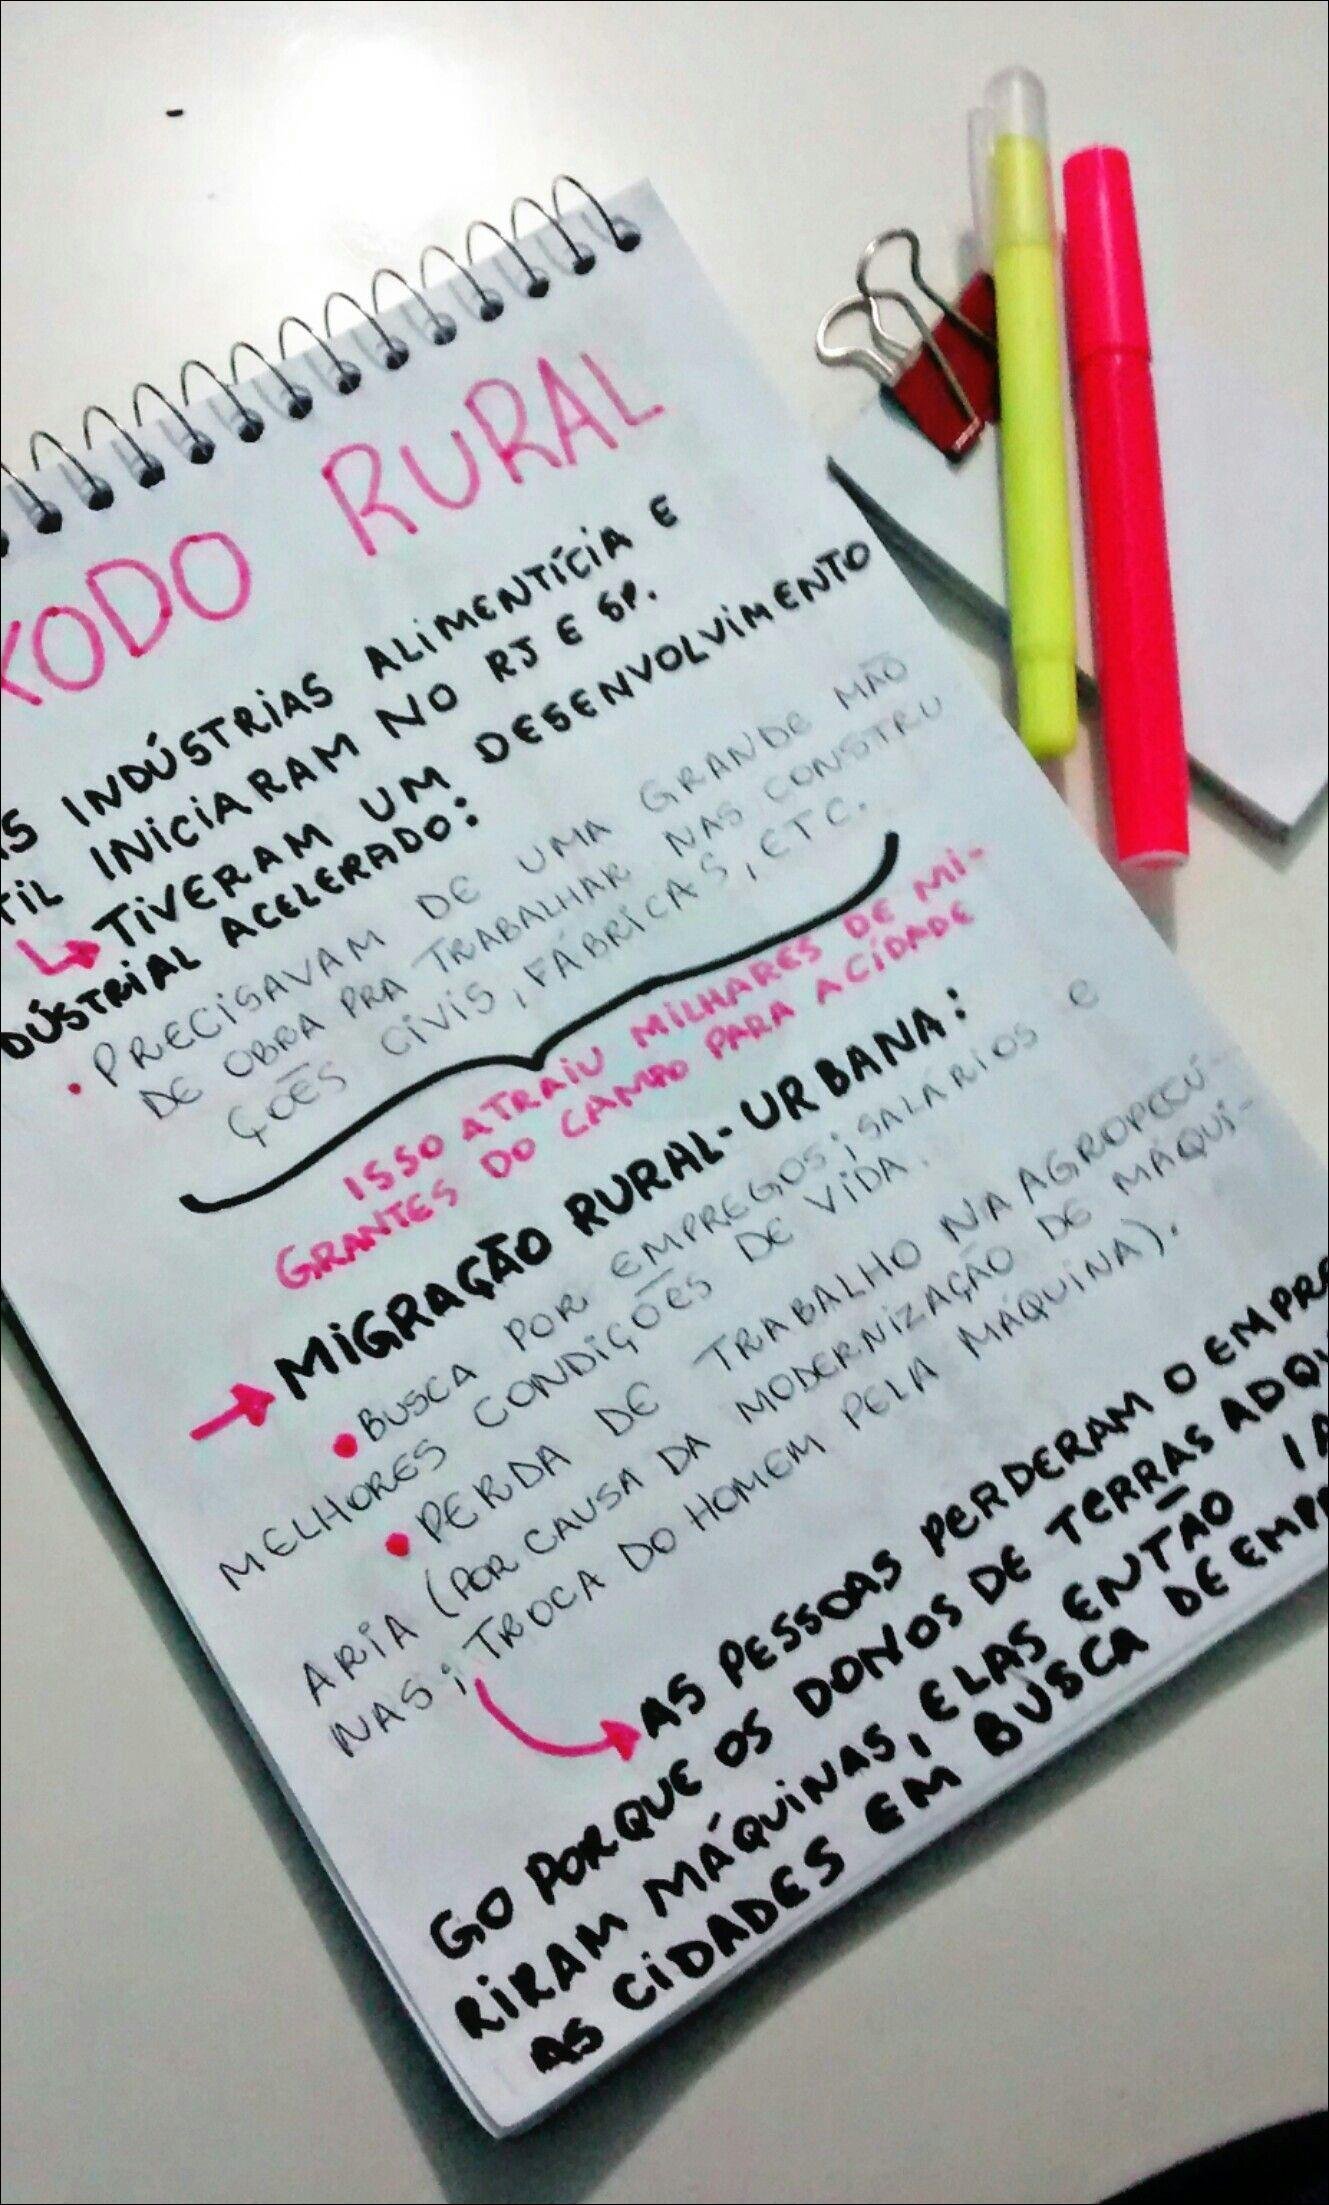 XODO RURAL
AS INDÚSTRIAS ALIMENTÍCIA E
TIL INICIARAM NO RJ E SP.
TIVERAM UM DESENVOLVIMENTO
DÚSTRIAL ACELERADO:
• PRECISAVAM DE UMA GRANDE MÃO
DE OBRA PRA TRABALHAR NAS CONSTRU-
ÇÕES CIVIS, FÁBRICAS, ETC.
ISSO ATRAIU MILHARES DE MI-
GRANTES DO CAMPO PARA A CIDADE
→ MIGRAÇÃO RURAL-URBANA:
• BUSCA POR EMPREGOS; SALÁRIOS E
MELHORES CONDIÇÕES DE VIDA.
• PERDA DE TRABALHO NA AGROPECU-
ÁRIA (POR CAUSA DA MODERNIZAÇÃO DE MÁQUI-
NAS; TROCA DO HOMEM PELA MÁQUINA).
AS PESSOAS PERDERAM O EMPRE
GO PORQUE OS DONOS DE TERRAS ADQUI
RIRAM MÁQUINAS, E ELAS ENTÃO IA
AS CIDADES EM BUSCA DE EMPR